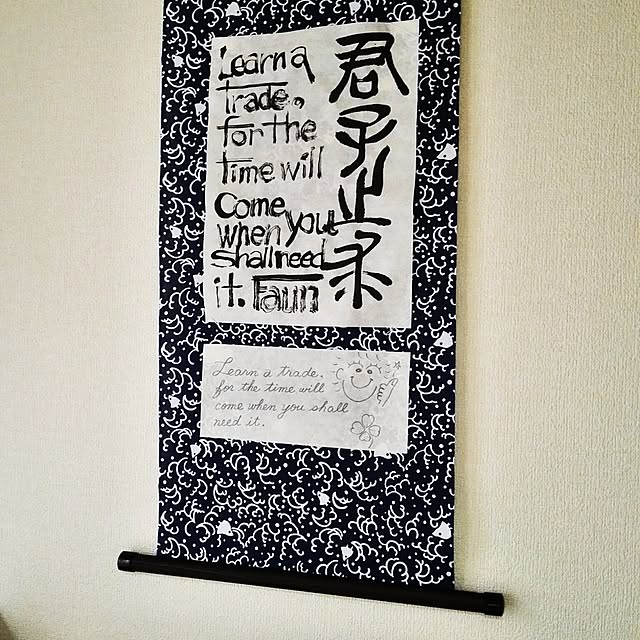 Learn a
trade.
for the
time will
Come
when you
shall need
it. Faun
君子
Learn a trade.
for the time will
come when you shall
need it.